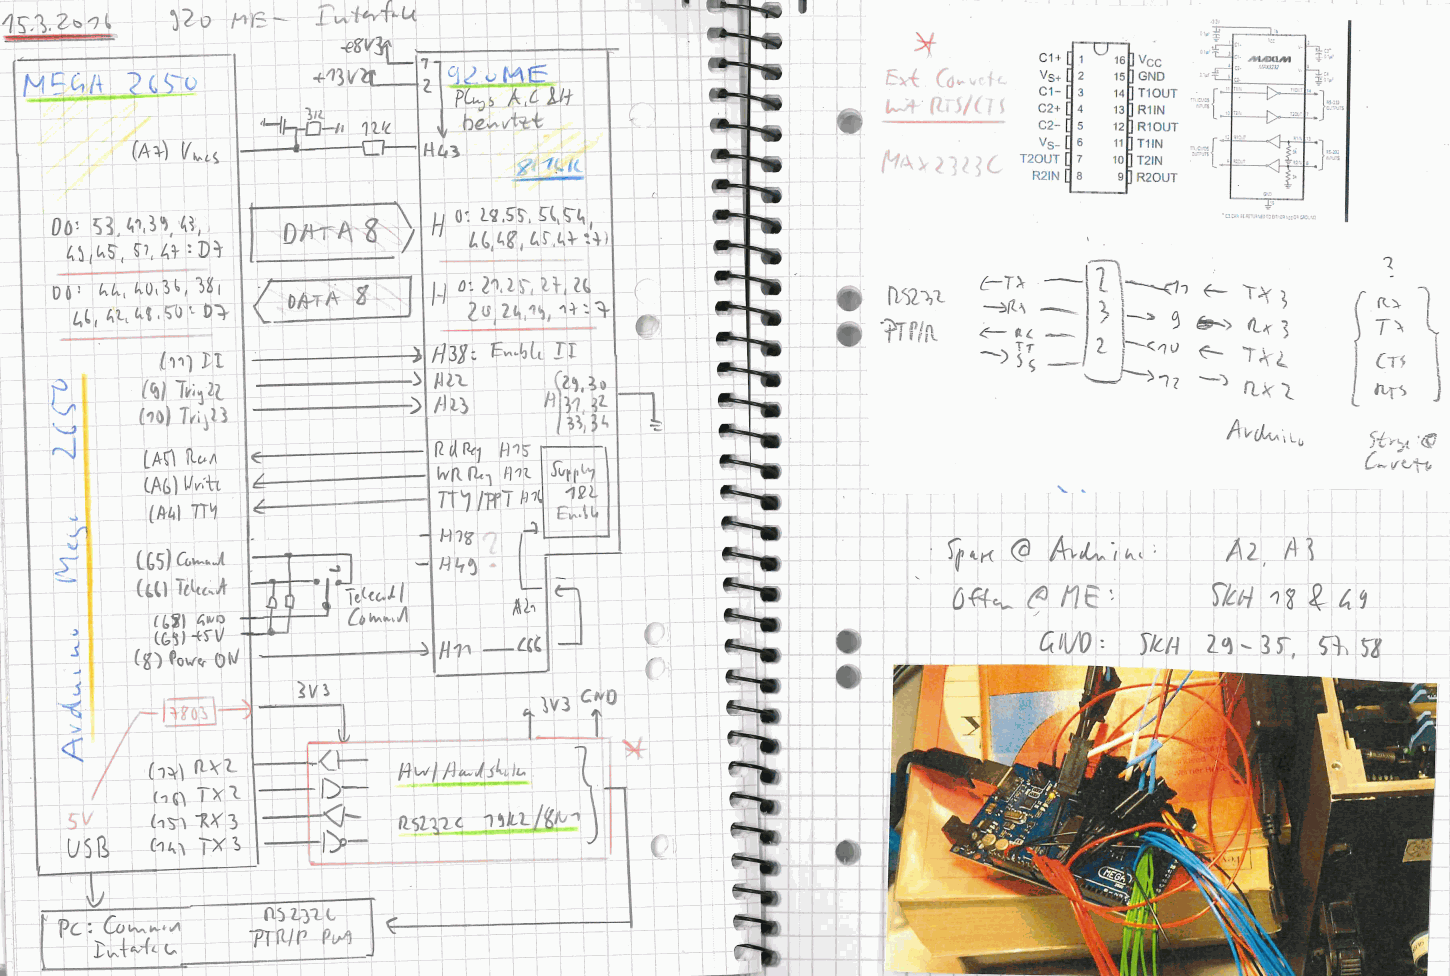 15.3.2016 920 ME - Interface
MEGA 2650
+8V3
+13V2
1
2
920ME
Plugs A, C & H
benutzt
12K
(A7) Vmes
H43
8.15K
D0: 53, 41, 39, 43,
49, 45, 51, 47 : D7
DATA 8
H 0: 28, 55, 56, 54,
46, 48, 45, 47 : 7
D0: 44, 40, 36, 38,
46, 42, 48, 50 : D7
DATA 8
H 0: 21, 25, 27, 26
20, 24, 19, 17 : 7
(11) II
H38: Enable II
(9) Trig22
H22
(10) Trig23
H23
H
29, 30
31, 32
33, 34
Arduino Mega 2650
(A5) Run
RdReg H15
(A6) Write
WR Reg H12
(A4) TTY
TTY/PPT
Supply
182
Enable
H18 ?
H49
(65) Command
(66) Telecmd
Telecmd/
Command
(68) GND
(69) +5V
(8) Power ON
A21
H11
C66
7803
3V3
3V3 GND
(17) RX2
(16) TX2
(15) RX3
(14) TX3
HW/Handshake
RS232C 19K2/8N1
5V
USB
PC: Common
RS232C
PTR/P Plug
*
Ext. Converter
with RTS/CTS
MAX2323C
C1+ 1 16 VCC
VS+ 2 15 GND
C1− 3 14 T1OUT
C2+ 4 13 R1IN
C2− 5 12 R1OUT
VS− 6 11 T1IN
T2OUT 7 10 T2IN
R2IN 8 9 R2OUT
MAXIM
RS232
PTP/R
TX
RX
2
3
2
11
9
10
12
TX3
RX3
TX2
RX2
Arduino
?
RX
TX
CTS
RTS
Spare @ Arduino: A2, A3
Offen @ ME: SKH 18 & 49
GND: SKH 29-35, 57, 58
MEGA